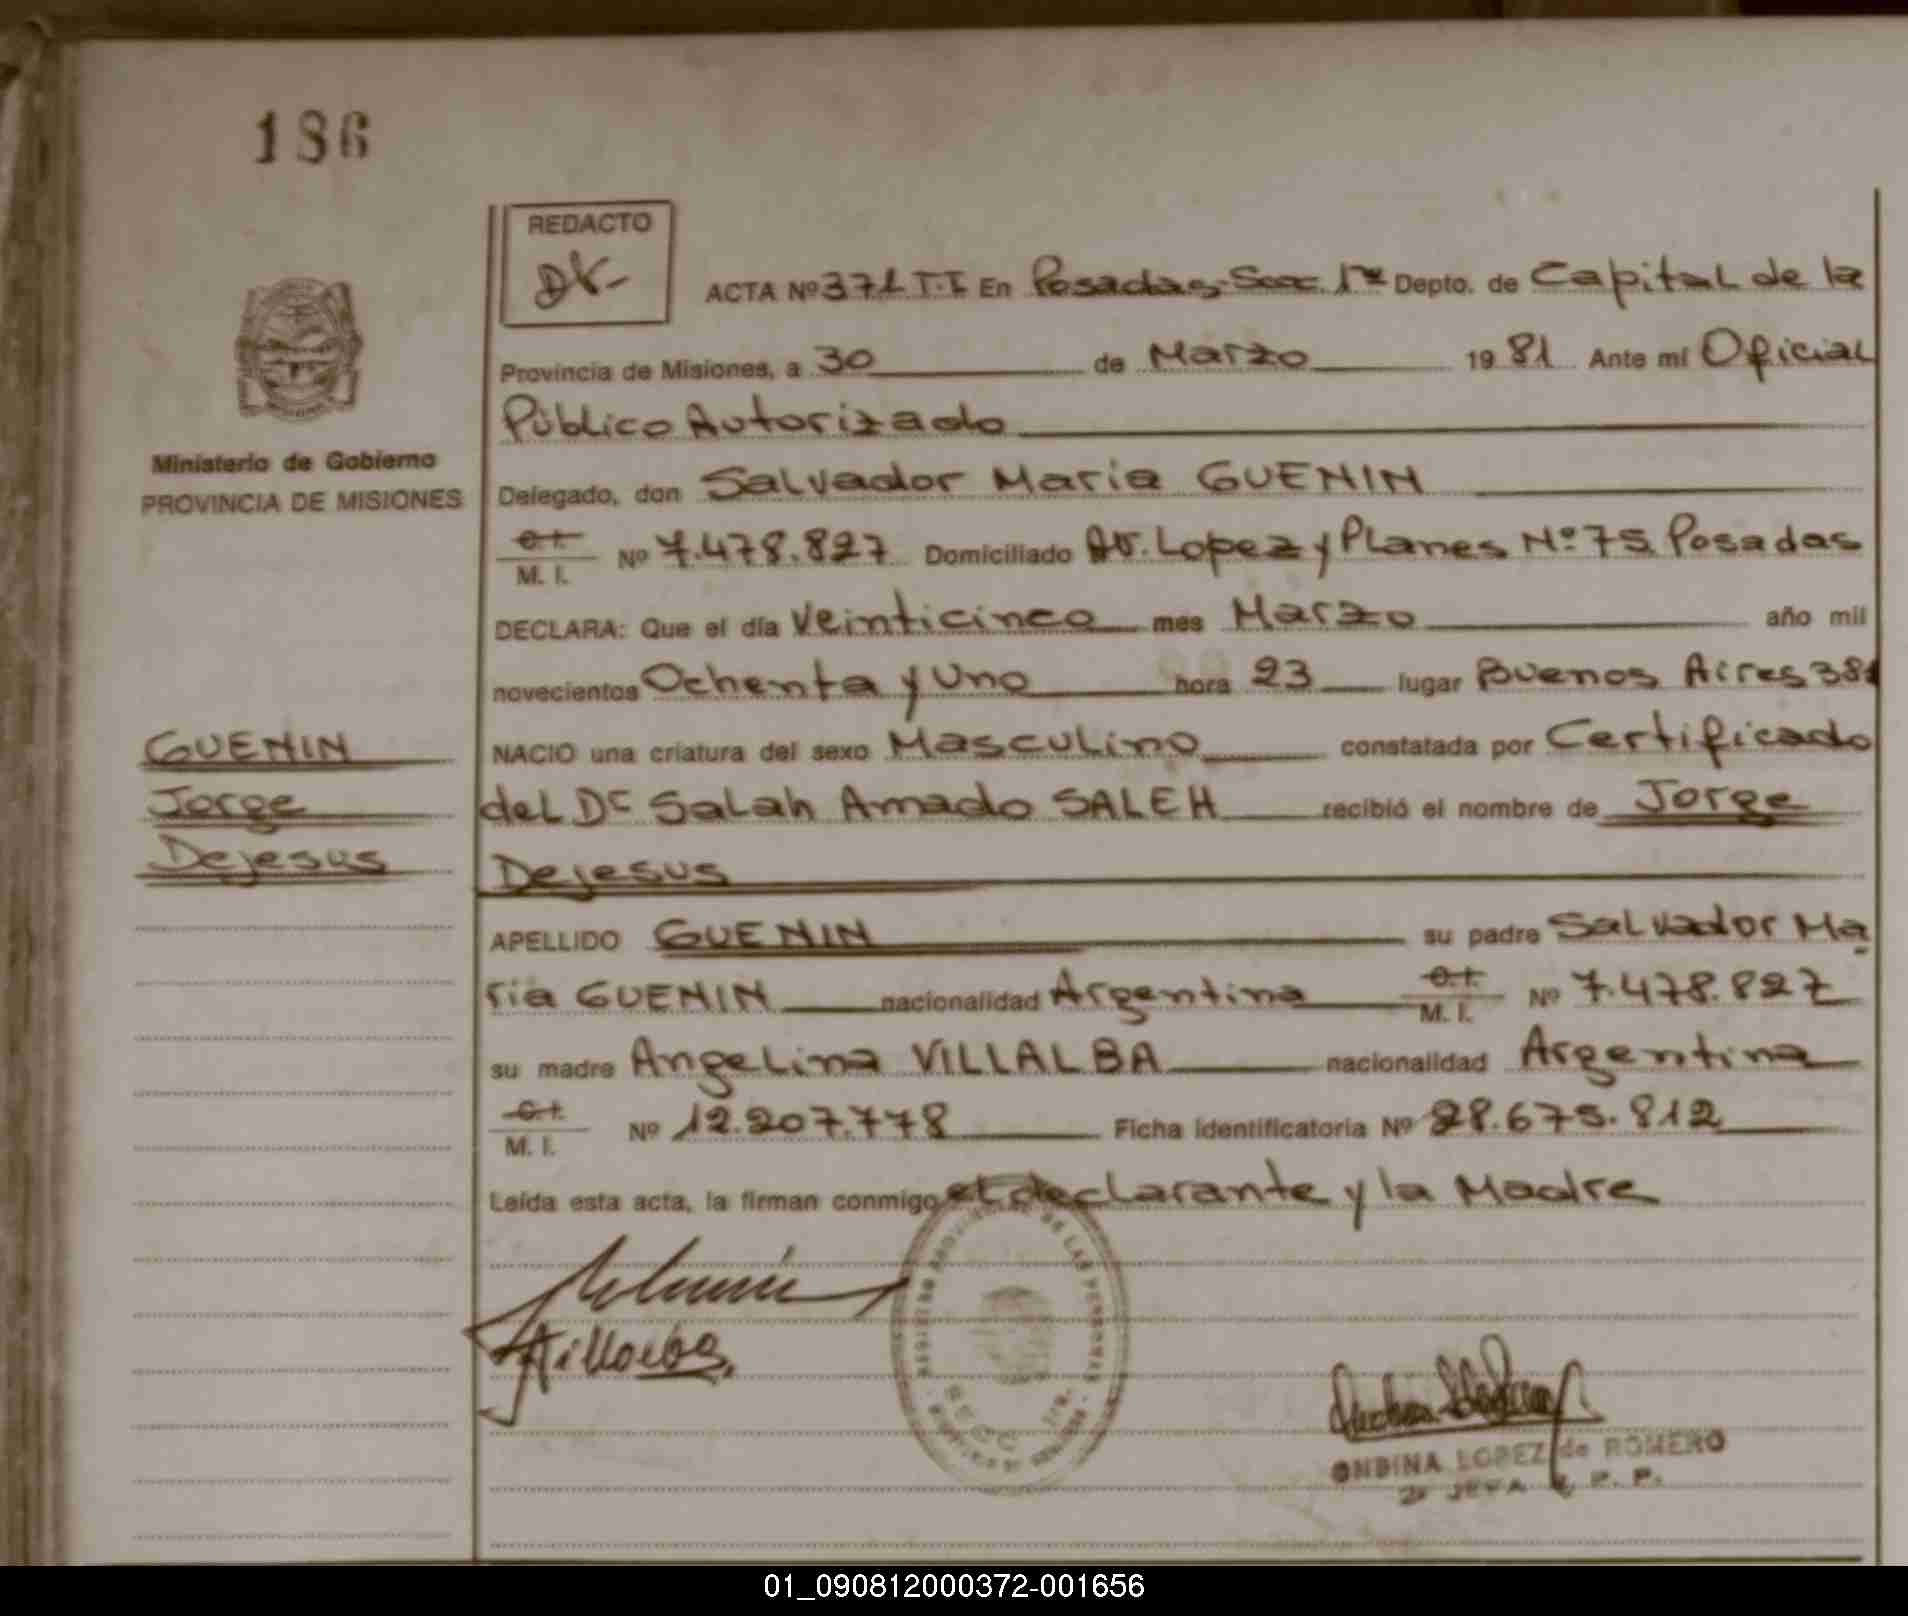 186
REDACTO
ACTA Nº 371 T.I En Posadas-Secc. 1ª Depto. de Capital de la
Provincia de Misiones, a 30 de Marzo 1981 Ante mí Oficial
Público Autorizado
Ministerio de Gobierno
PROVINCIA DE MISIONES
Delegado, don Salvador Maria GUENIN
C.I. M. I. Nº 7.478.827 Domiciliado Av. Lopez y Planes Nº 75 Posadas
DECLARA: Que el día Veinticinco mes Marzo año mil
novecientos Ochenta y Uno hora 23 lugar Buenos Aires 381
GUENIN
Jorge
Dejesus
NACIO una criatura del sexo Masculino constatada por Certificado
del Dr Salah Amado SALEH recibió el nombre de Jorge
Dejesus
APELLIDO GUENIN su padre Salvador Ma
ria GUENIN nacionalidad Argentina C.I. M. I. Nº 7.478.827
su madre Angelina VILLALBA nacionalidad Argentina
C.I. M. I. Nº 12.207.778 Ficha identificatoria Nº 28.675.812
Leída esta acta, la firman conmigo el declarante y la Madre
REGISTRO PROVINCIAL DE LAS PERSONAS
ONDINA LOPEZ de ROMERO
2ª JEFA R. P. P.
01_090812000372-001656